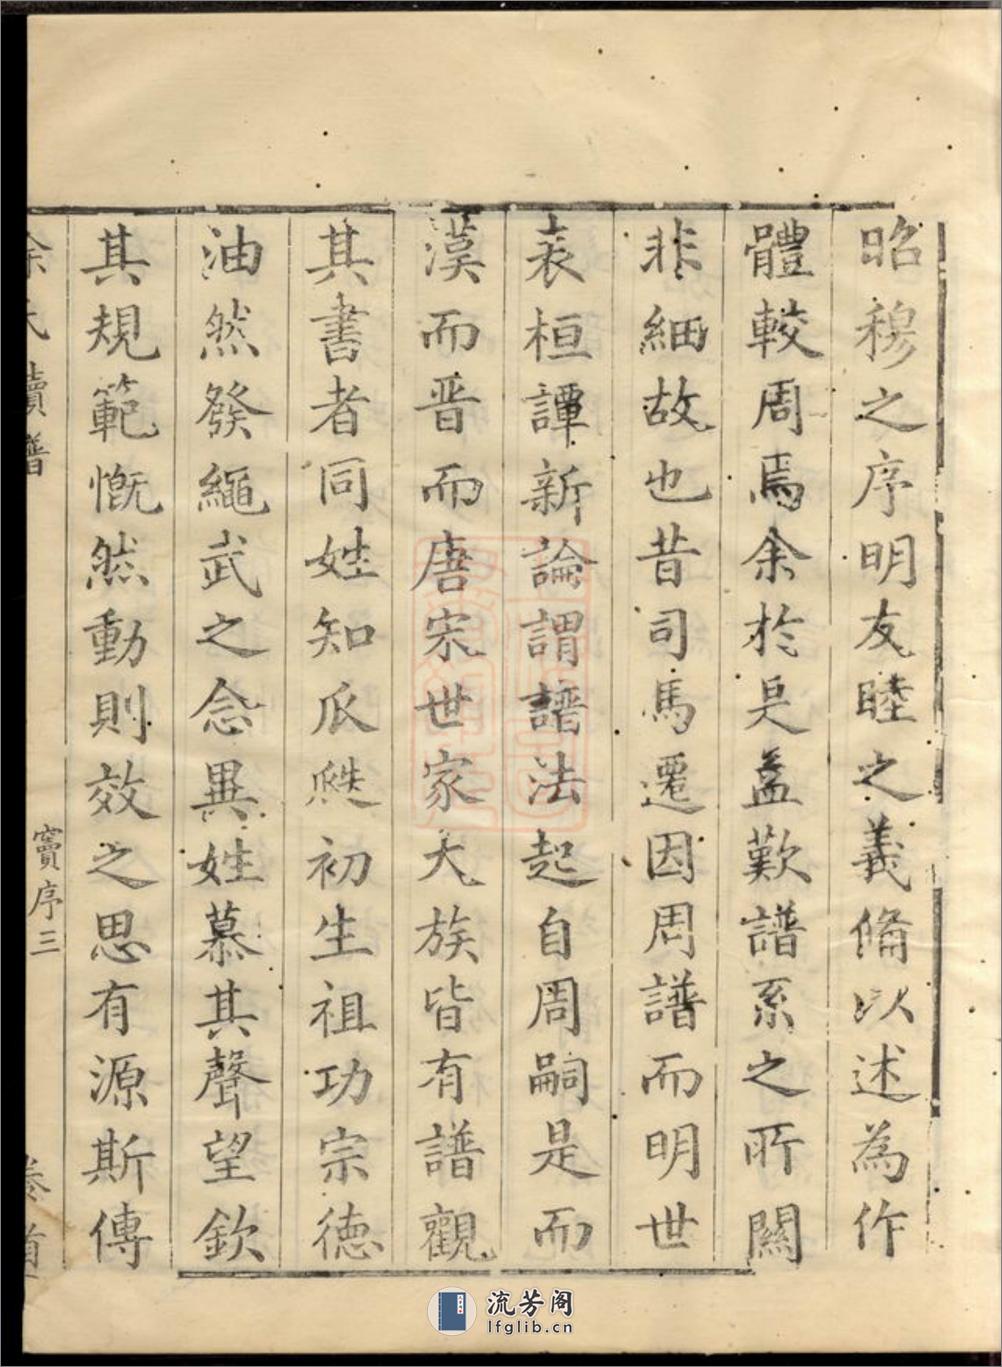 昭穆之序明友睦之義備以述為作
體較周焉余於是益歎譜系之所關
非細故也昔司馬遷因周譜而明世
表桓譚新論謂譜法起自周嗣是而
漢而晉而唐宋世家大族皆有譜觀
其書者同姓知瓜瓞初生祖功宗德
油然發繩武之念異姓慕其聲望欽
其規範慨然動則效之思有源斯傳
余氏續譜
竇序三
卷首
流芳阁
lfglib.cn